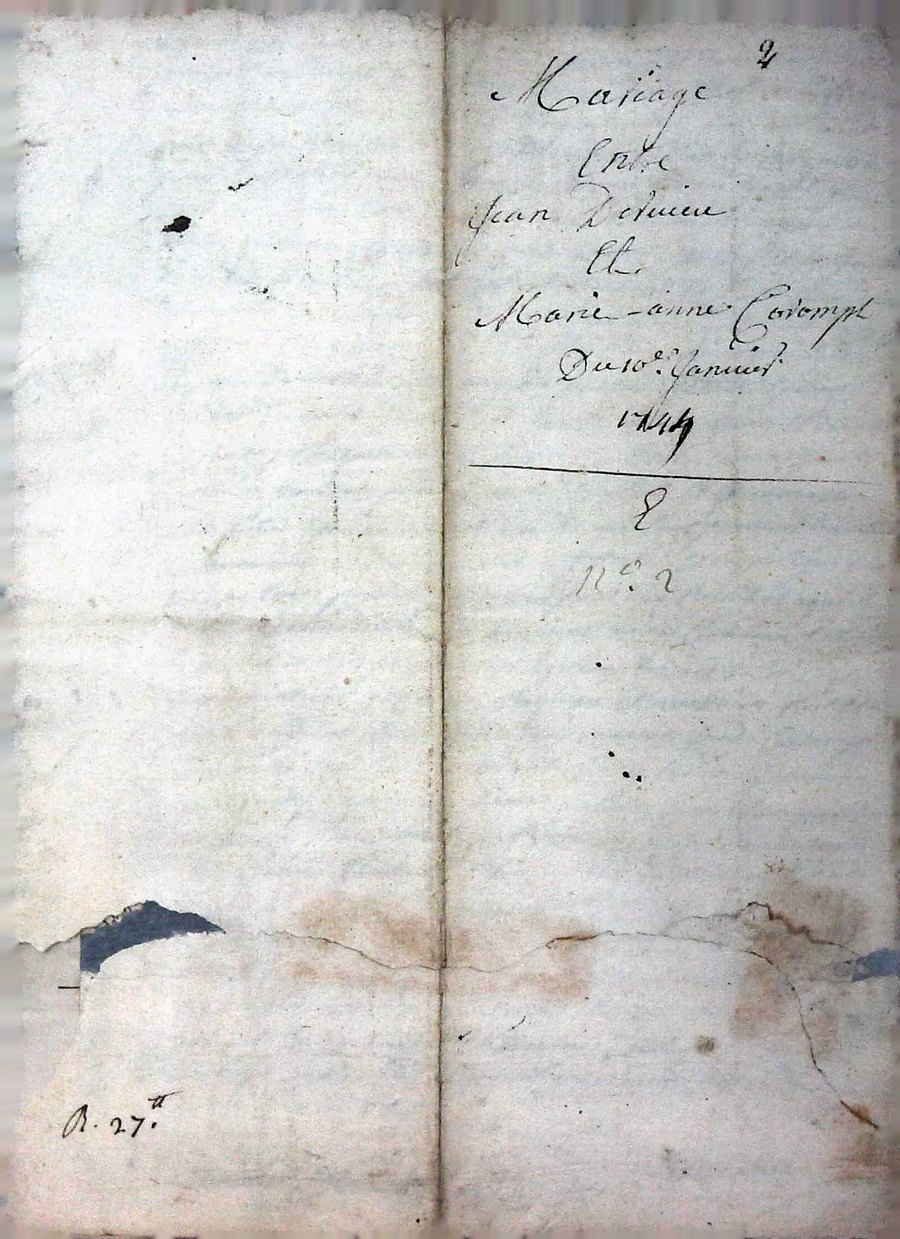 2
Mariage
Entre
Jean Dervieu
Et
Marie-anne Corompt
Du 10e. Janvier
1744
E
N° 2
R. 27.tt